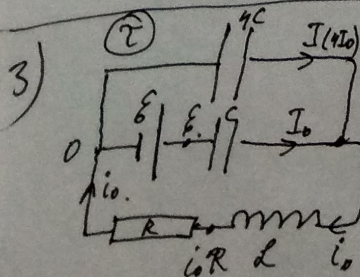 3)
τ
4C
I(4I₀)
ℰ
ℰ.
C
I₀
0
i₀.
R
i₀R
L
i₀